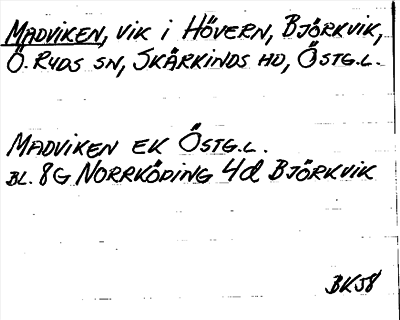 MADVIKEN, VIK I HÖVERN, BJÖRKVIK,
Ö. RYDS SN, SKÄRKINDS HD, ÖSTG.L.
MADVIKEN EK ÖSTG.L.
BL. 8G NORRKÖPING 4d BJÖRKVIK
BK58